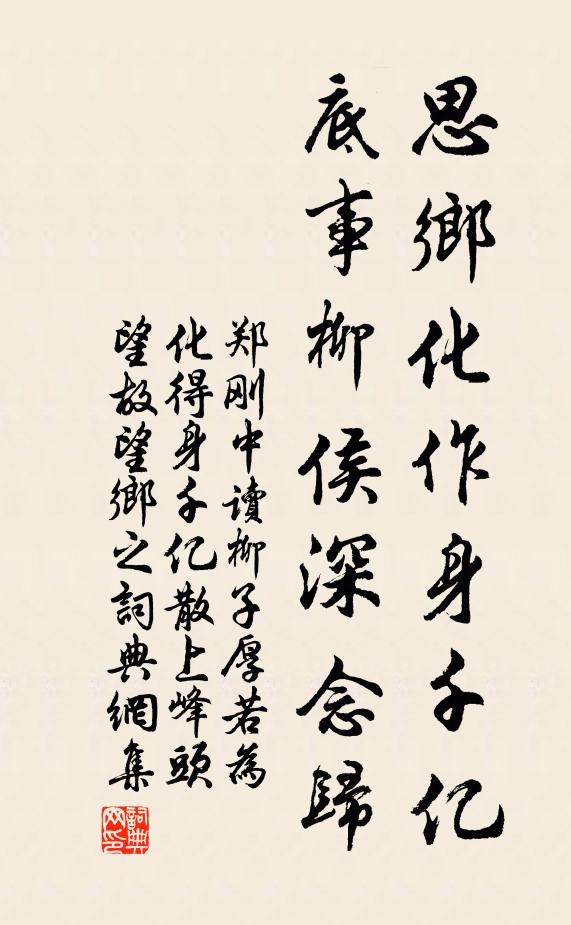 思鄉化作身千亿
底事柳侯深念歸
郑刚中讀柳子厚若為
化得身千亿散上峰頭
望故望鄉之詞典網集
詞典网印